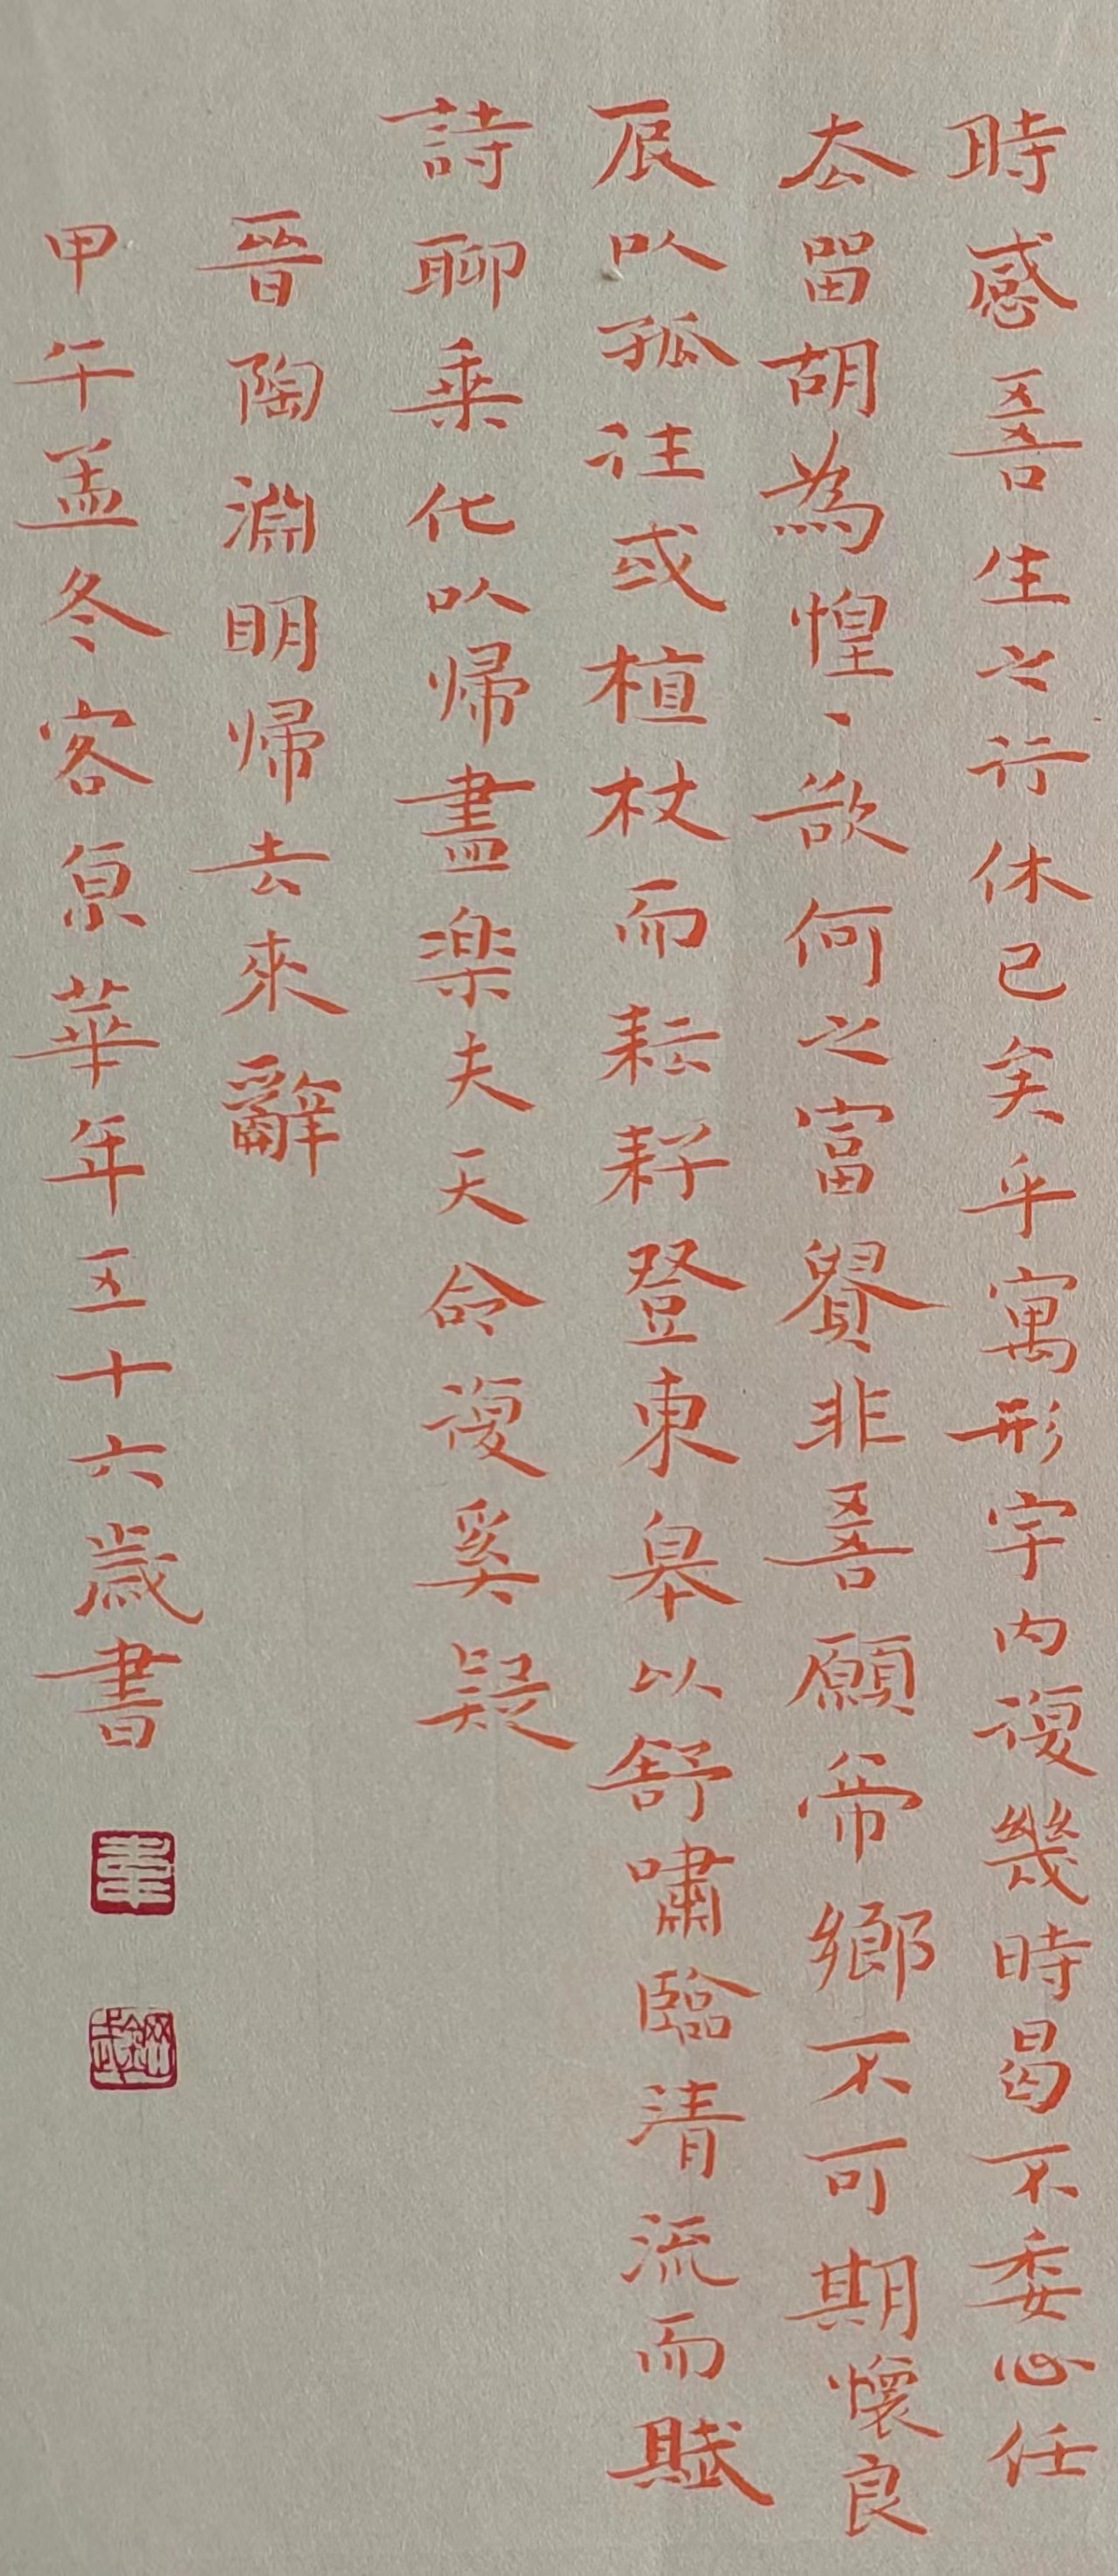 時感吾生之行休已矣乎寓形宇内復幾時曷不委心任
去留胡為惶〻欲何之富貴非吾願帝鄉不可期懷良
辰以孤往或植杖而耘耔登東皋以舒嘯臨清流而賦
詩聊乘化以歸盡樂夫天命復奚疑
晉陶淵明歸去來辭
甲午孟冬客京華年五十六歲書